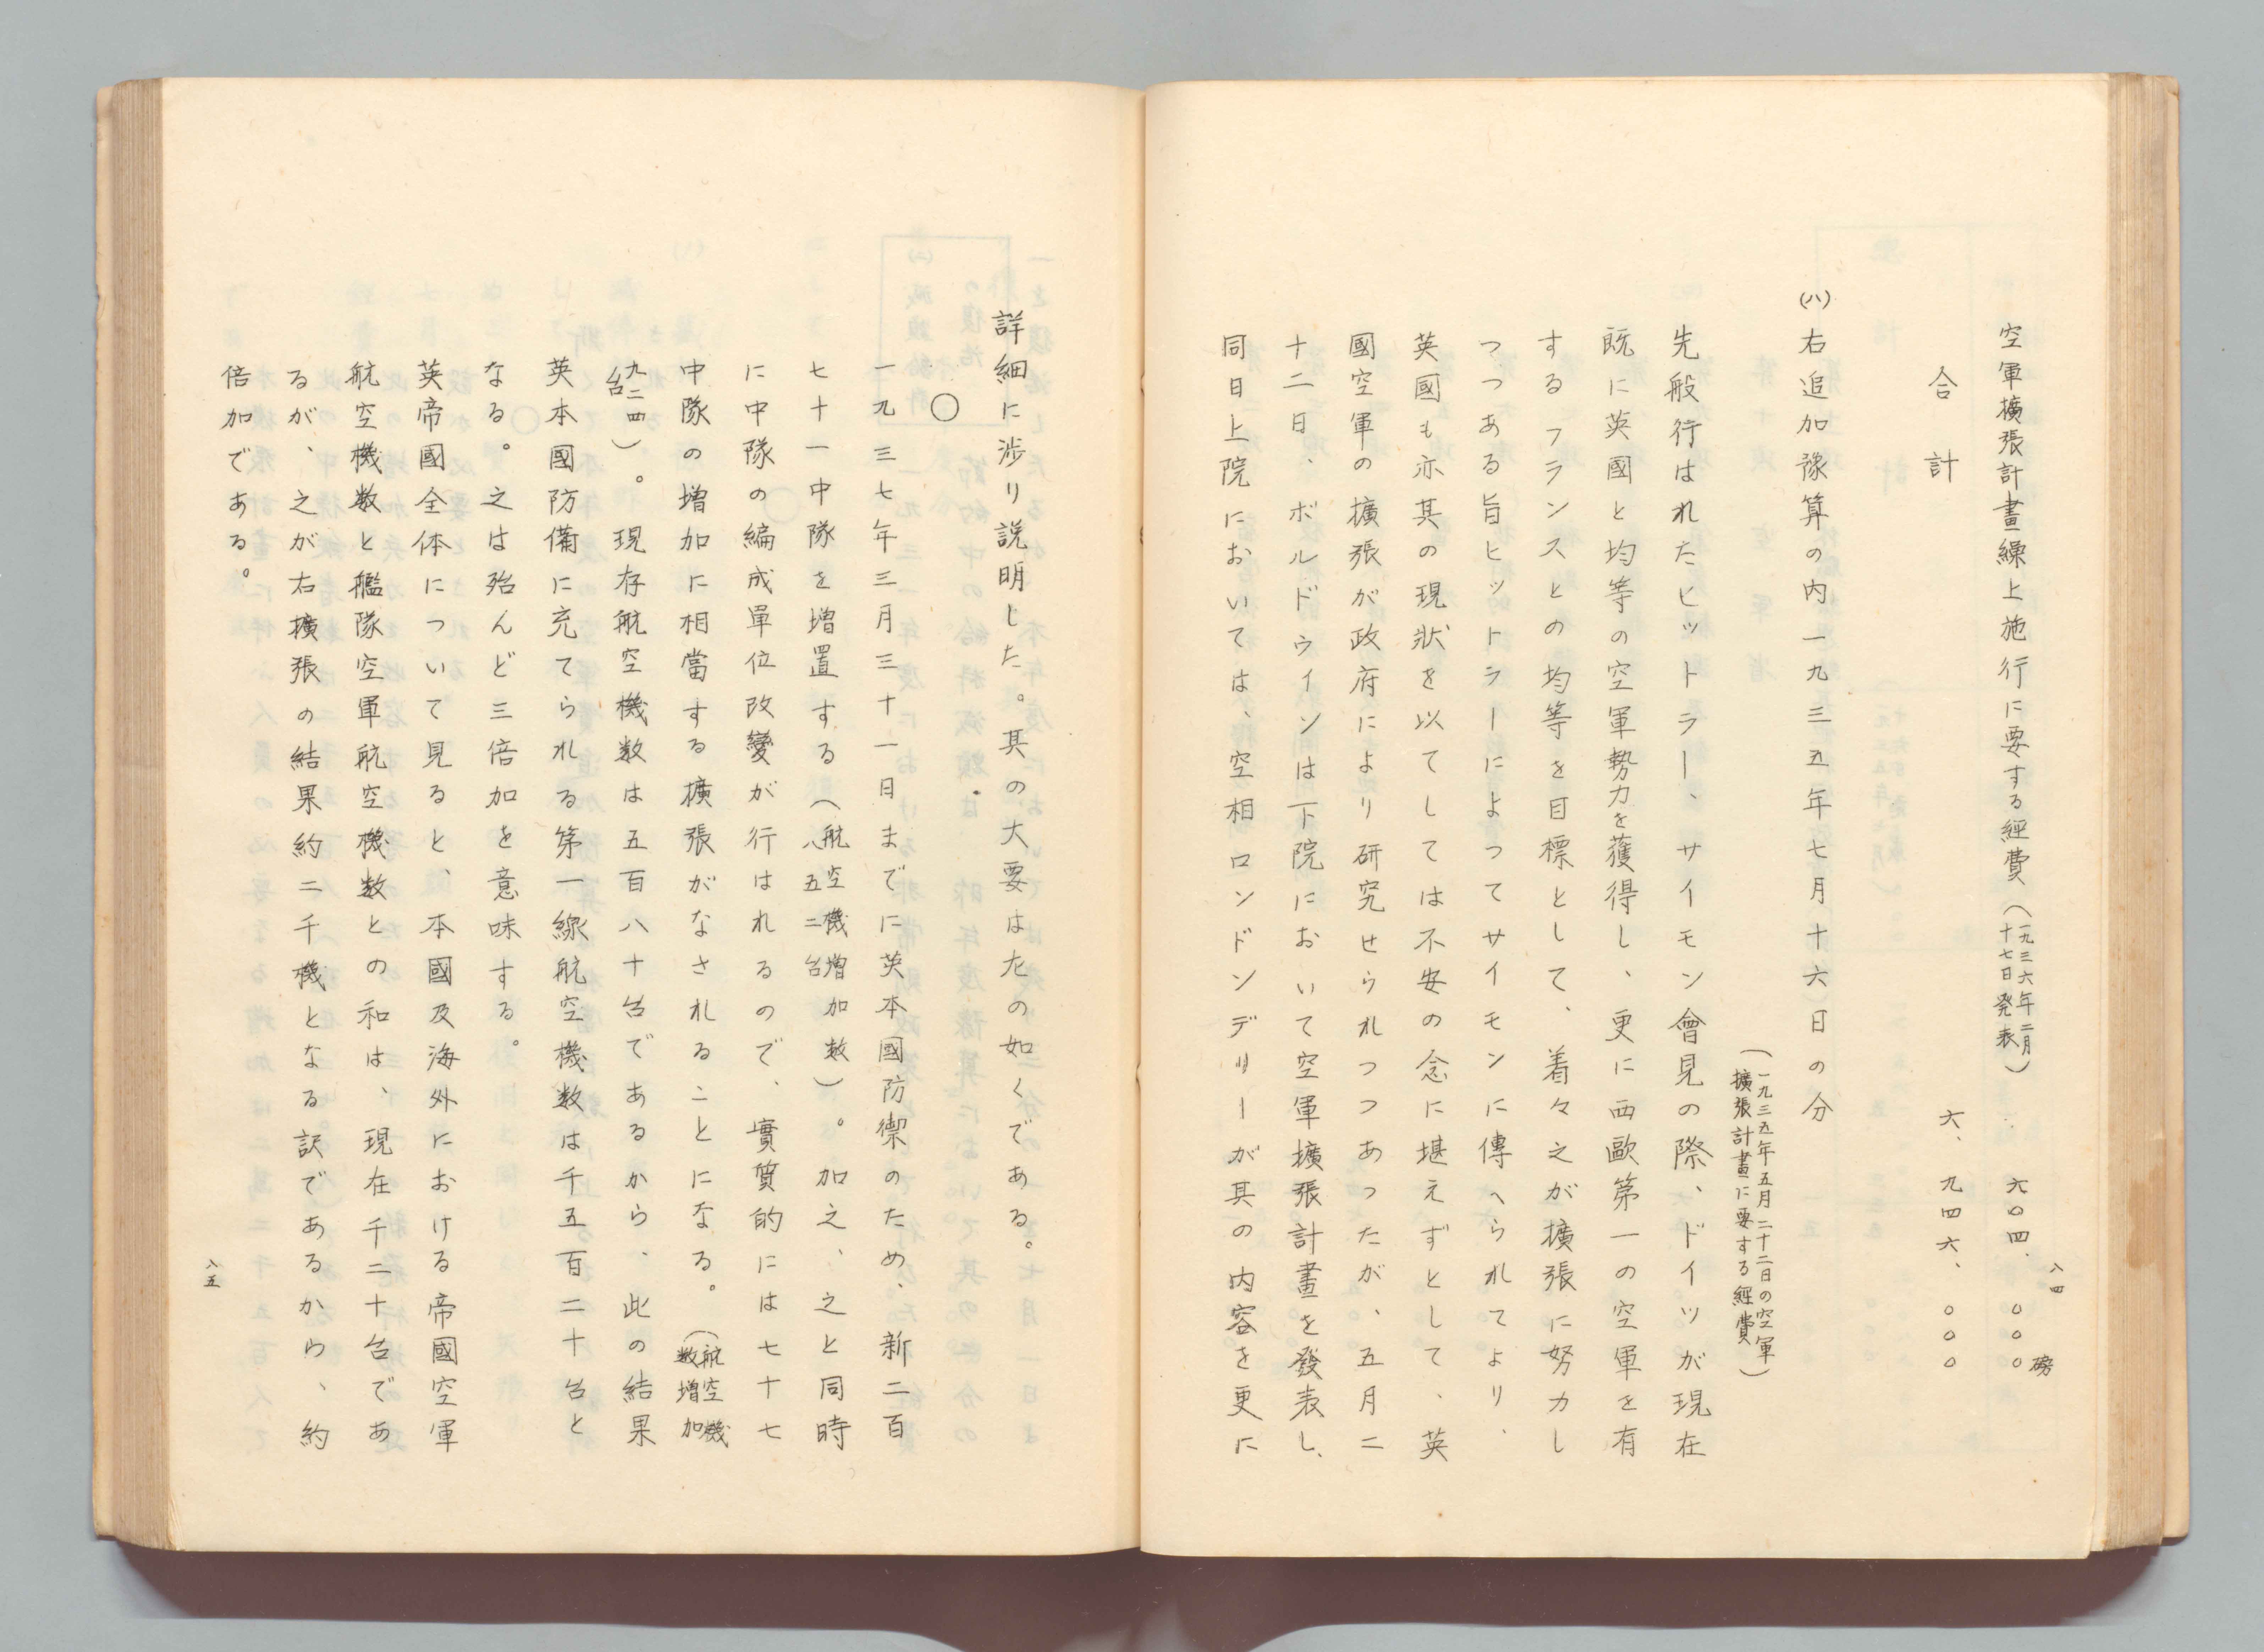 八四
空軍擴張計畫繰上施行に要する經費（一九三六年二月十七日発表）　六〇四、〇〇〇磅
合計　六、九四六、〇〇〇
(八)右追加豫算の内一九三五年七月十六日の分
（一九三五年五月二十二日の空軍擴張計畫に要する經費）
先般行はれたヒットラー、サイモン會見の際、ドイツが現在
既に英國と均等の空軍勢力を獲得し、更に西歐第一の空軍を有
するフランスとの均等を目標として、着々之が擴張に努力し
つつある旨ヒットラーによってサイモンに傳へられてより、
英國も亦其の現狀を以てしては不安の念に堪えずとして、英
國空軍の擴張が政府により研究せられつつあったが、五月二
十二日、ボルドウインは下院において空軍擴張計畫を發表し、
同日上院においては、空相ロンドンデリーが其の内容を更に
詳細に渉り説明した。其の大要は左の如くである。
〇
一九三七年三月三十一日までに英本國防禦のため、新二百
七十一中隊を増置する（航空機増加数八五二台）。加之、之と同時
に中隊の編成軍位改變が行はれるので、實質的には七十七
中隊の増加に相當する擴張がなされることになる。（航空機数増加
九二四台）。現存航空機数は五百八十台であるから、此の結果
英本國防備に充てられる第一線航空機数は千五百二十台と
なる。之は殆んど三倍加を意味する。
英帝國全体について見ると、本國及海外における帝國空軍
航空機数と艦隊空軍航空機数との和は、現在千二十台であ
るが、之が右擴張の結果約二千機となる訳であるから、約
倍加である。
八五